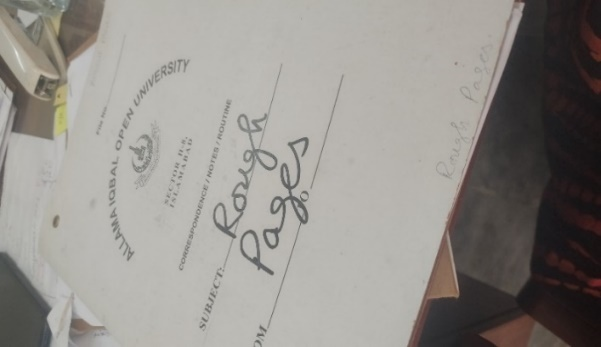 File No.
ALLAMA IQBAL OPEN UNIVERSITY
SECTOR H-8,
ISLAMABAD
CORRESPONDENCE / NOTES / ROUTINE
SUBJECT: Rough
Pages
OM TO
Rough Pages.